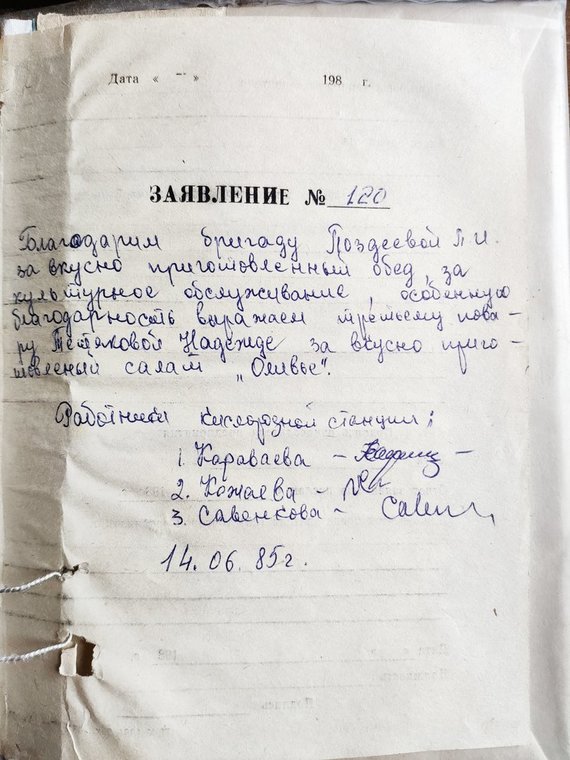 Дата « » 198 г.
ЗАЯВЛЕНИЕ № 120
Благодарим бригаду Поздеевой Л.И.
за вкусно приготовленный обед, за
культурное обслуживание, особенную
благодарность выражаем третьему пова-
ру Надежде за вкусно приго-
товленый салат „Оливье".
Работники кислородной станции:
1. Караваева –
2. Кожаева –
3. Савенкова –
14.06.85г.